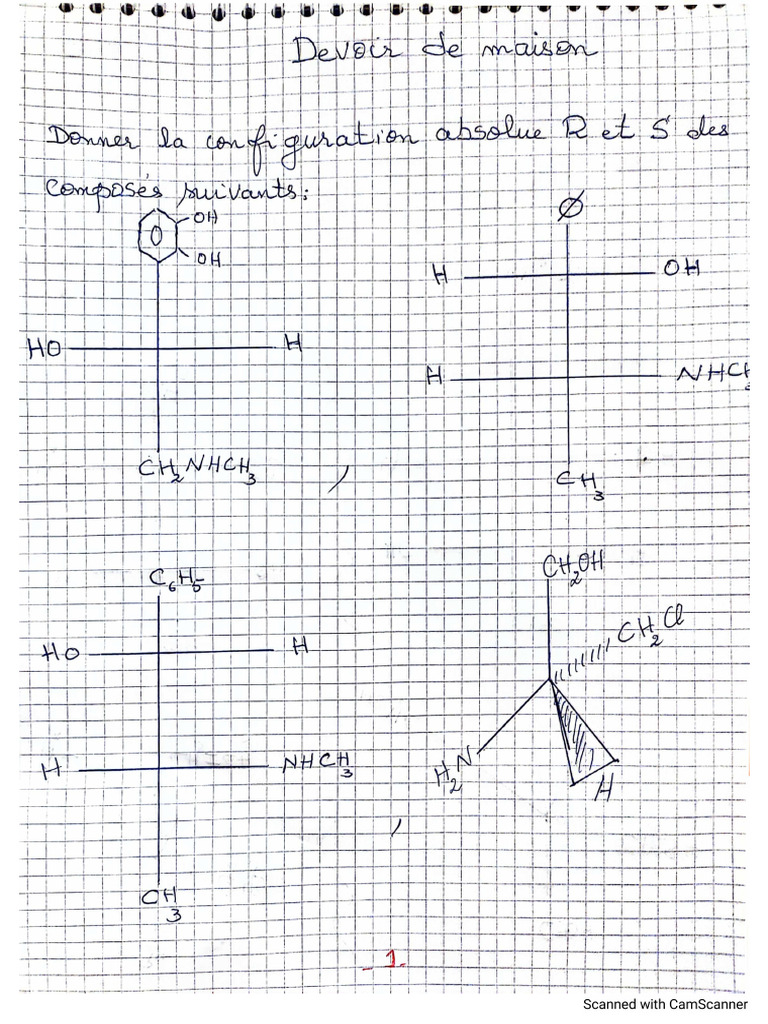 Devoir de maison
Donner la configuration absolue R et S des
composés suivants:
OH
OH
HO
H
CH2NHCH3
,
Ø
H
OH
H
NHCH3
CH3
C6H5
HO
H
H
NHCH3
CH3
,
CH2OH
CH2Cl
H2N
H
1
Scanned with CamScanner